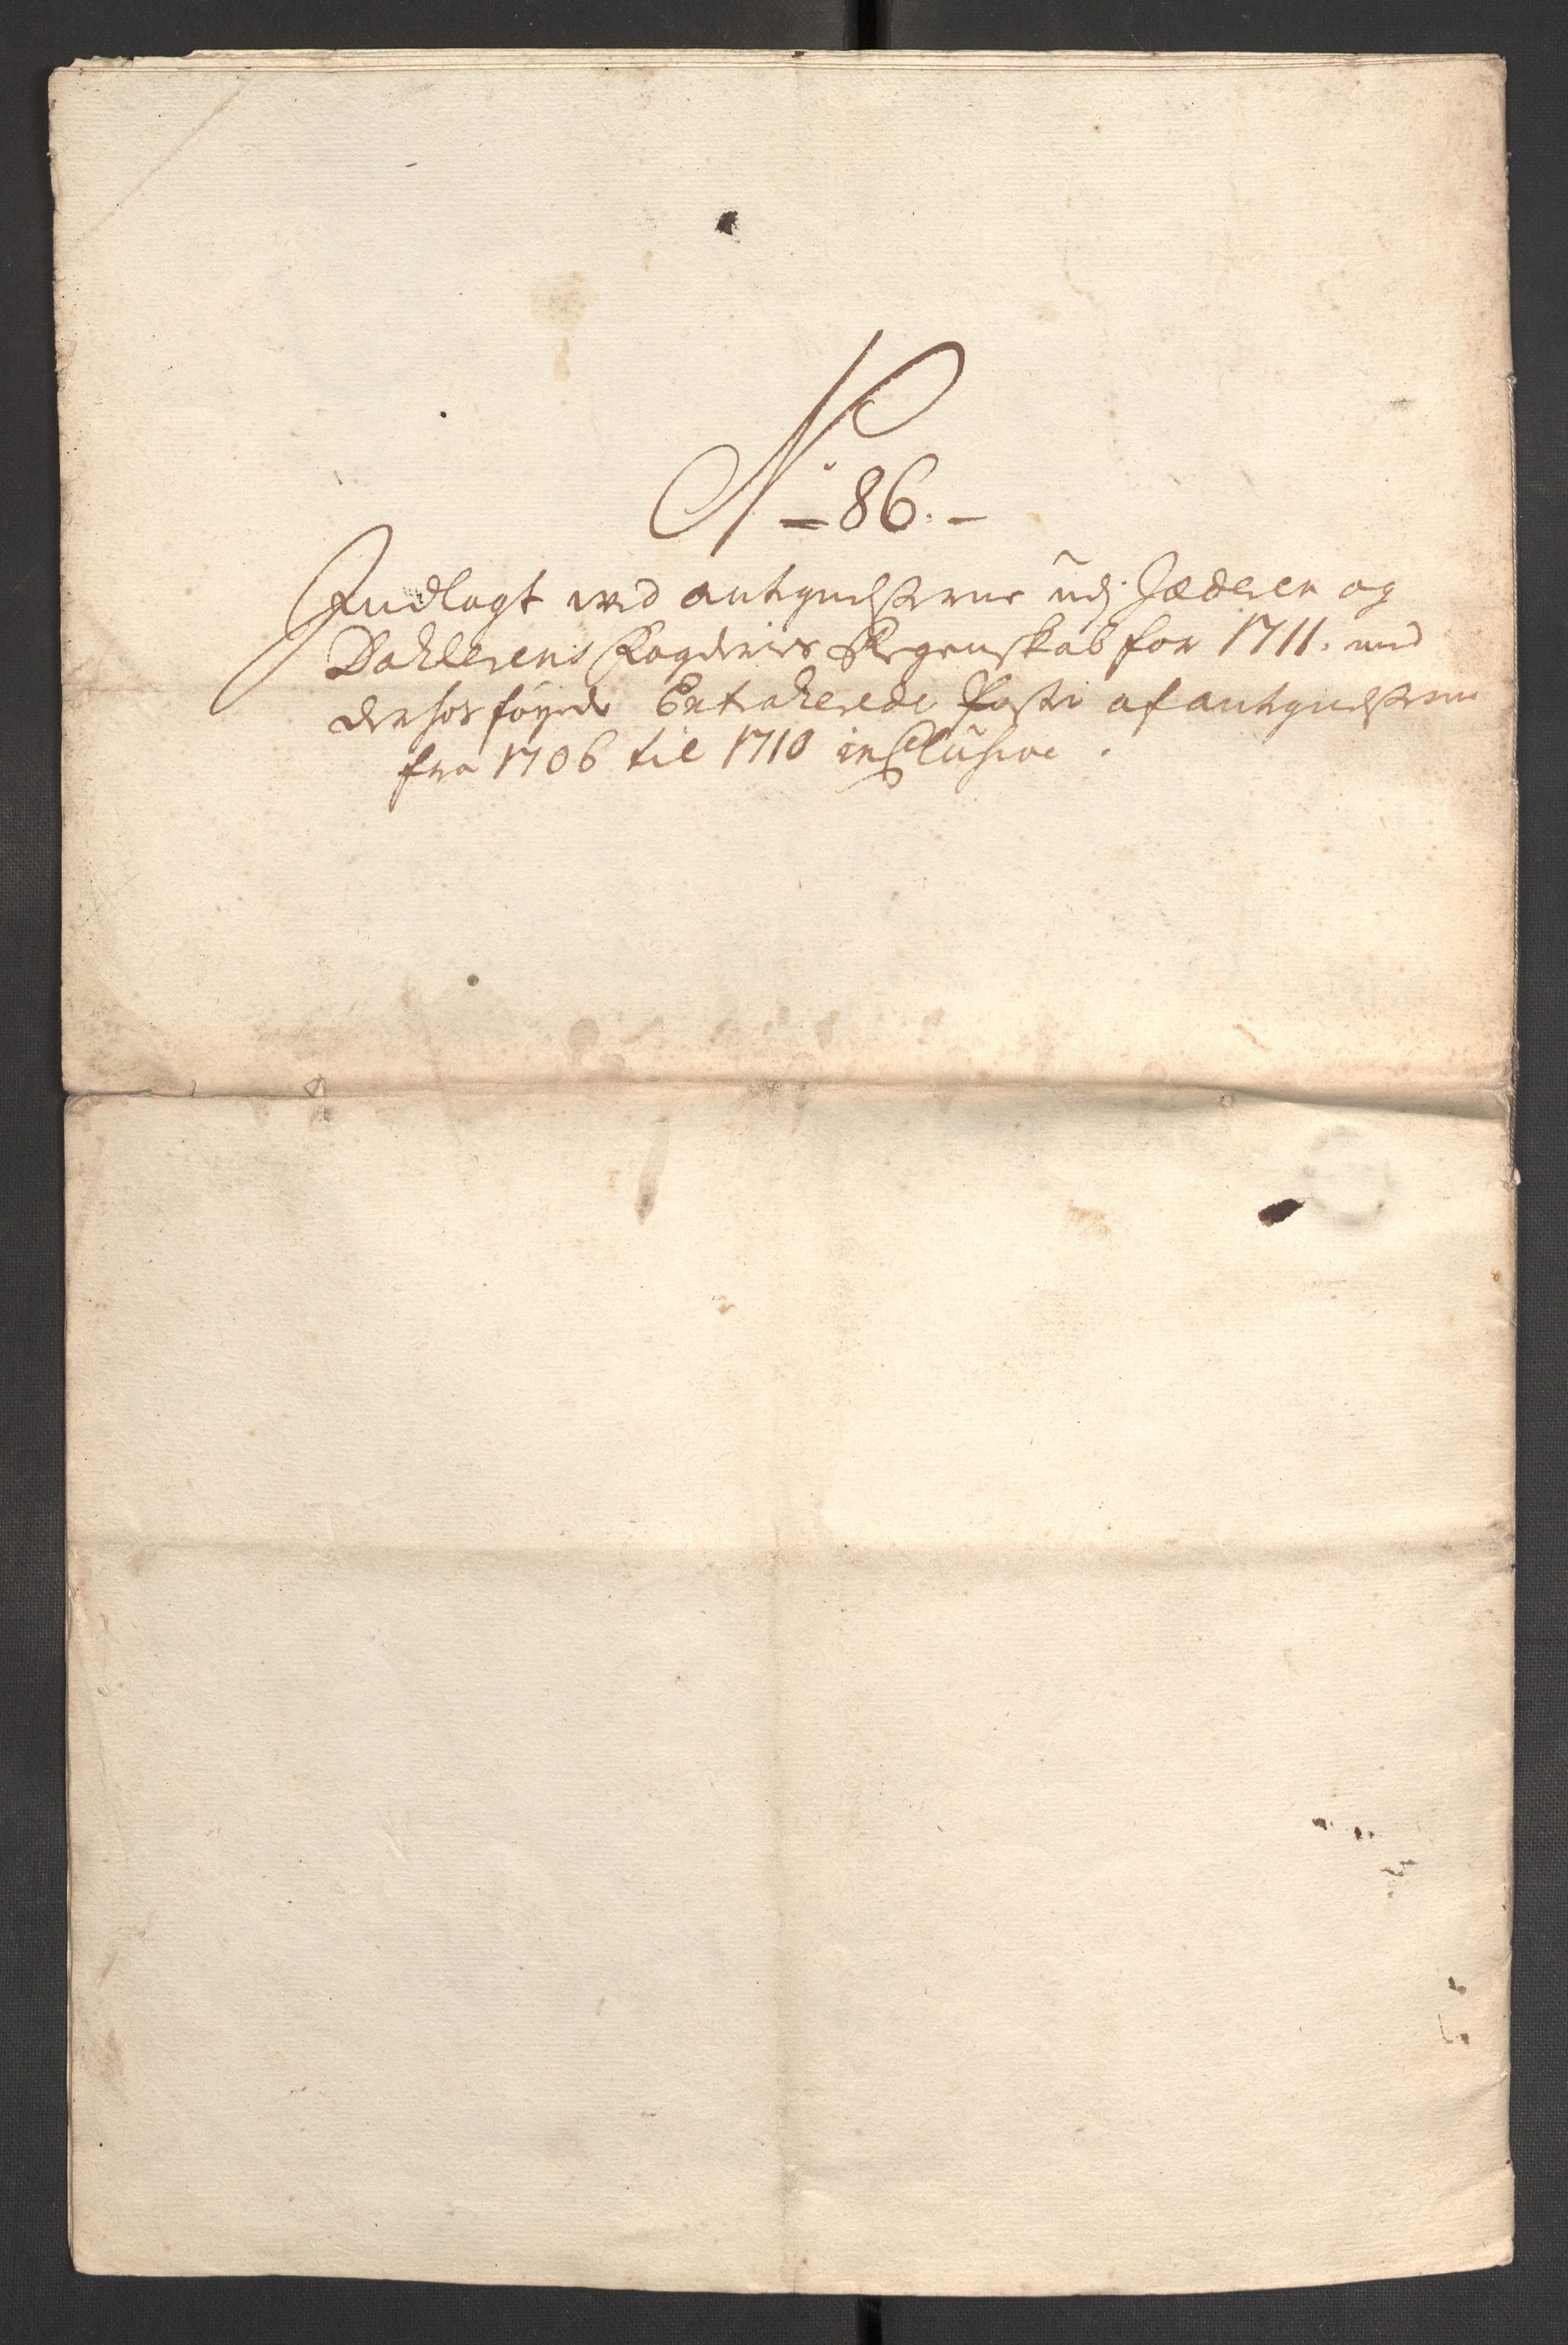 No 86.
Indlagt wed antegnelserne udj Jæderen og
Dahlerens Fogderies Regenskab for 1711. med
derhos føyede Extraherede Poster af antegnelserne
fra 1706 til 1710 inclusive.